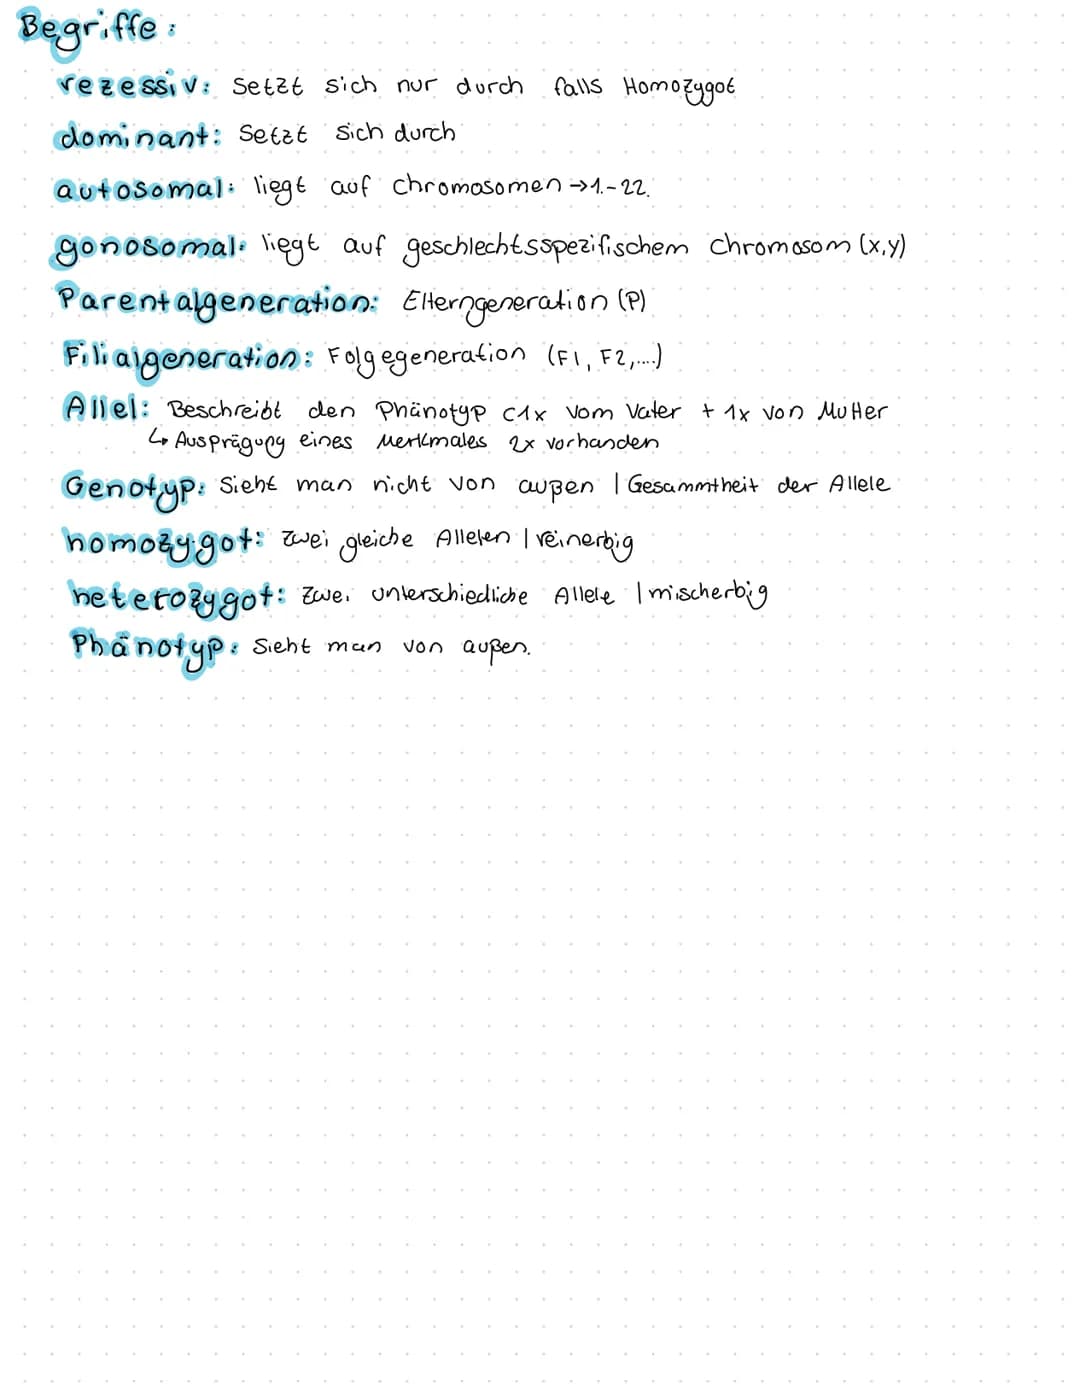 Begriffe:
rezessiv: Setzt sich nur durch falls Homozygot
dominant: Setzt sich durch
autosomal: liegt auf Chromosomen →1.-22.
gonosomal: liegt auf geschlechtsspezifischem Chromosom (x,y)
Parentalgeneration: Elterngeneration (P)
Filialgeneration: Folgegeneration (F1, F2,....)
Allel: Beschreibt den Phänotyp C1x vom Vater + 1x von Mutter
↳ Ausprägung eines Merkmales 2x vorhanden
Genotyp: Sieht man nicht von außen | Gesammtheit der Allele
homozygot: Zwei gleiche Allelen | reinerbig
heterozygot: Zwei unterschiedliche Allele | mischerbig
Phänotyp: Sieht man von außen.